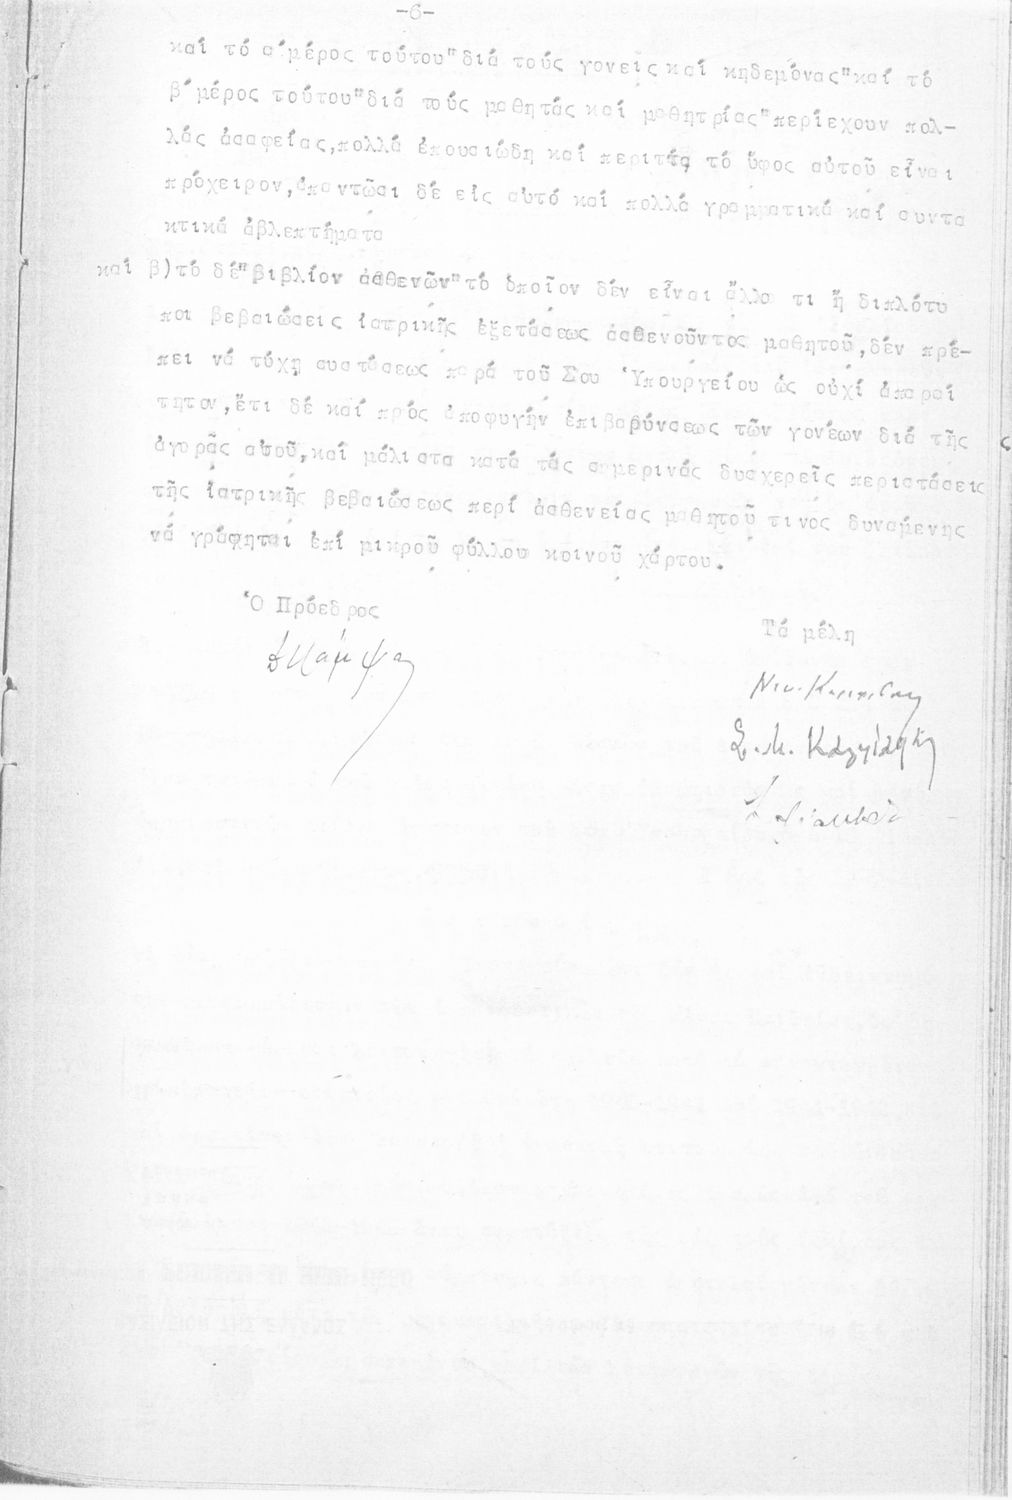 -6-
καί τό α΄μέρος τούτου"διά τούς γονεῖς καί κηδεμόνας"καί τό
β΄μέρος τούτου"διά τούς μαθητάς καί μαθητρίας"περιέχουν πολ-
λάς ἀσαφείας,πολλά ἐπουσιώδη καί περιττά, τό ὕφος αὐτοῦ εἶναι
πρόχειρον,ἀπαντῶσι δέ εἰς αὐτό καί πολλά γραμματικά καί συντα
κτικά ἀβλεπτήματα
καί β)τό δέ"βιβλίον ἀσθενῶν"τό ὁποῖον δέν εἶναι ἄλλο τι ἤ διπλότυ
ποι βεβαιώσεις ἰατρικῆς ἐξετάσεως ἀσθενοῦντος μαθητοῦ,δέν πρέ-
πει νά τύχῃ συστάσεως παρά τοῦ Σου Ὑπουργείου ὡς οὐχί ἀπαραί
τητον,ἔτι δέ καί πρός ἀποφυγήν ἐπιβαρύνσεως τῶν γονέων διά τῆς
ἀγορᾶς αὐτοῦ,καί μάλιστα κατά τάς σημερινάς δυσχερεῖς περιστάσεις
τῆς ἰατρικῆς βεβαιώσεως περί ἀσθενείας μαθητοῦ τινος δυναμένης
νά γράφηται ἐπί μικροῦ φύλλου κοινοῦ χάρτου.
Ὁ Πρόεδρος
Τά μέλη